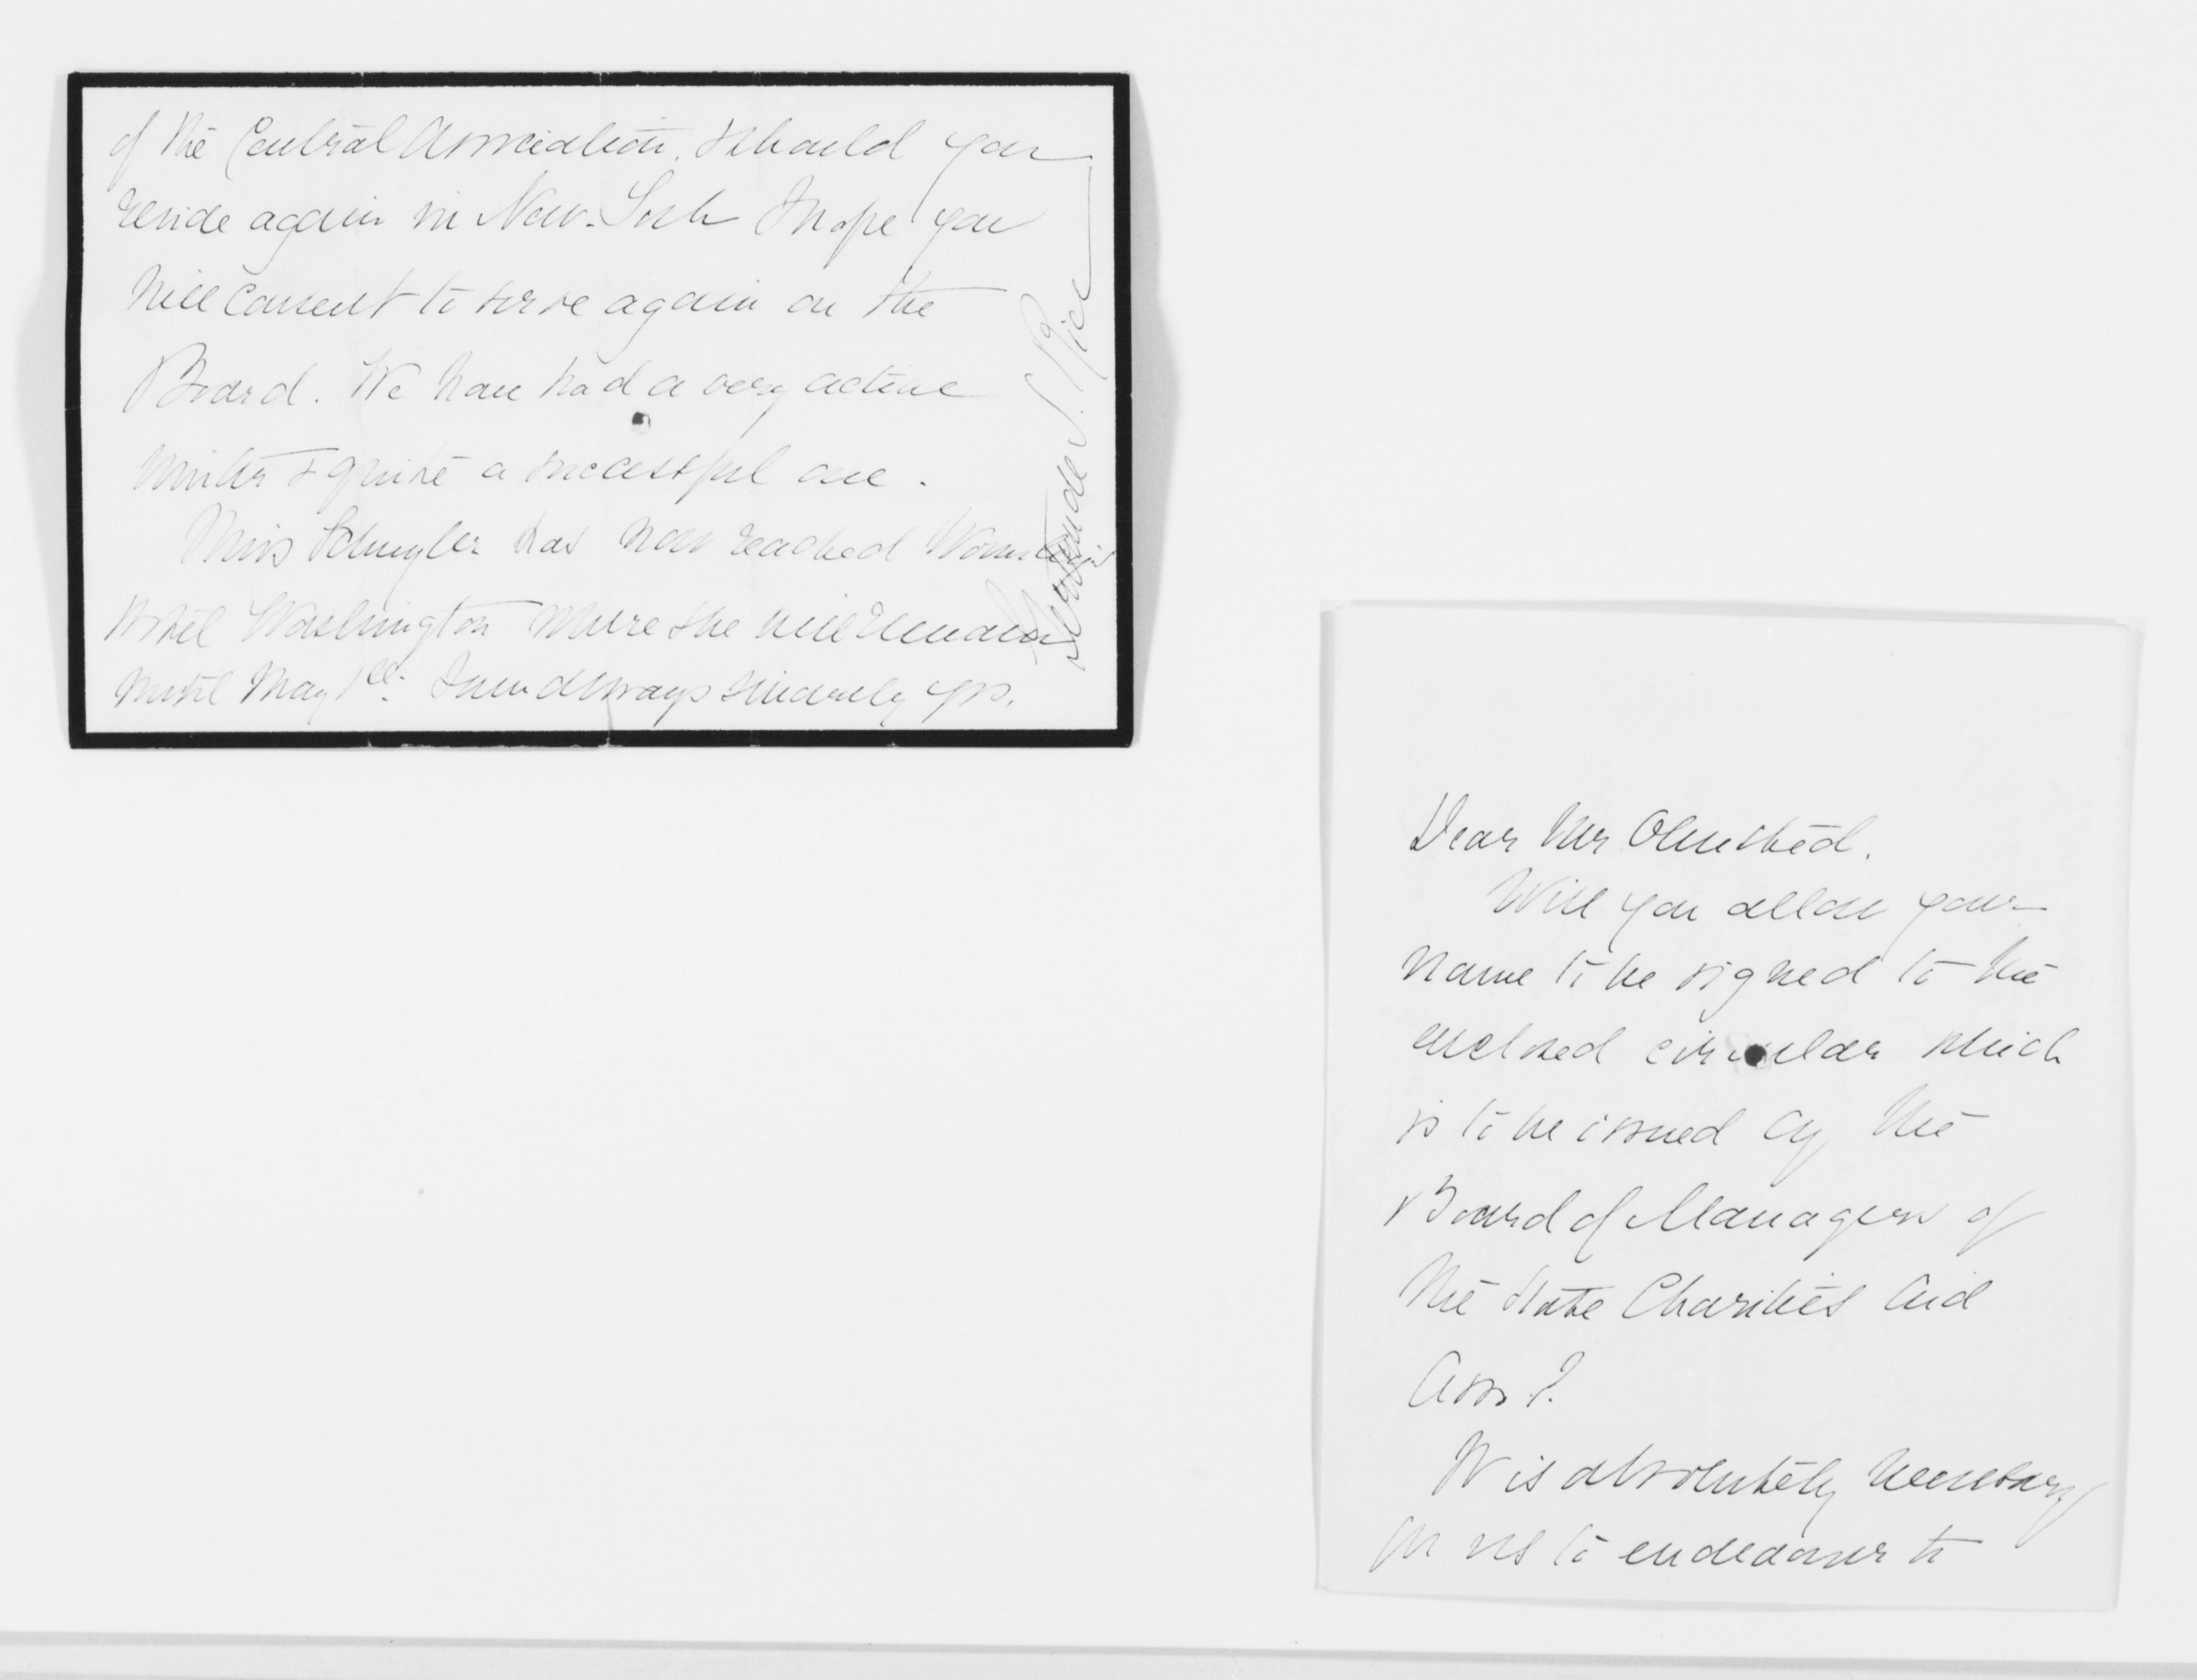 of the Central Association. Should you
reside again in New-York I hope you
will consent to serve again on the
Board. We have had a very active
winter & quite a successful one.
Miss Schuyler has now reached
Hotel Washington where she will remain
until May 1st. I am always sincerely yrs.
Gertrude S. Rice
Dear Mr Olmsted.
Will you allow your
name to be signed to the
enclosed circular which
is to be issued by the
Board of Managers of
the State Charities Aid
Assn?
It is absolutely necessary
for us to endeavour to